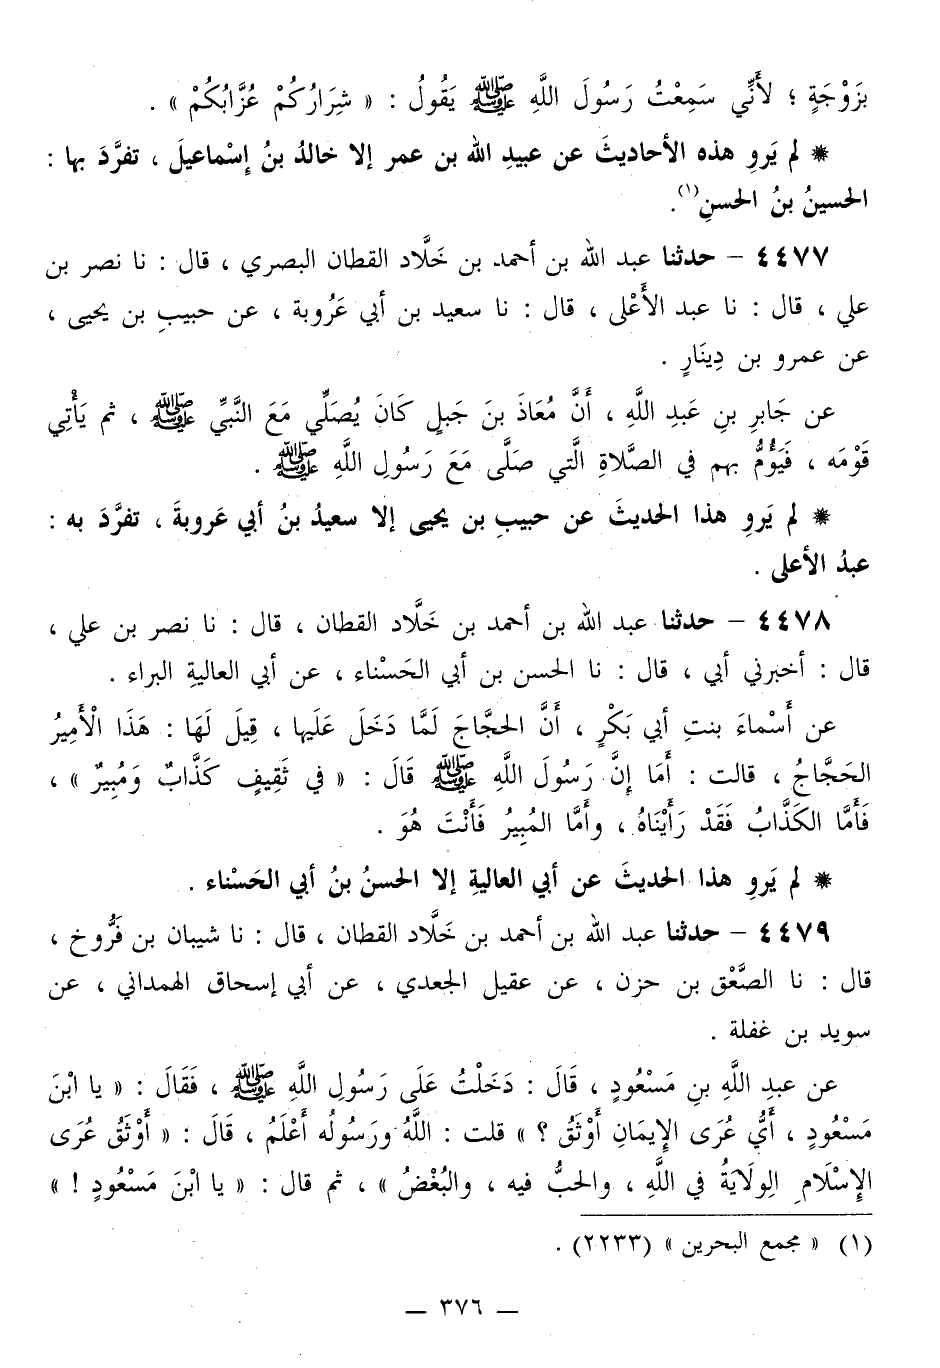 بِزَوْجَةٍ ؛ لأَنِّي سَمِعْتُ رَسُولَ اللَّهِ ﷺ يَقُولُ : « شِرَارُكُمْ عُزَّابُكُمْ » .
* لم يَروِ هذه الأحاديثَ عن عبيدِ الله بن عمر إلا خالدُ بنُ إسْماعيلَ ، تفرَّدَ بها :
الحسينُ بنُ الحسنِ(١).
٤٤٧٧ – حدثنا عبد الله بن أحمد بن خَلَّاد القطان البصري ، قال : نا نصر بن
علي ، قال : نا عبد الأَعْلى ، قال : نا سعيد بن أبي عَرُوبة ، عن حبيبِ بن يحيى ،
عن عمرو بن دِينَارٍ .
عن جَابرِ بنِ عَبدِ اللَّهِ ، أَنَّ مُعَاذَ بنَ جَبلٍ كَانَ يُصَلِّي مَعَ النَّبيِّ ﷺ ، ثم يَأْتِي
قَوْمَه ، فَيَؤُمُّ بهم في الصَّلاةِ الَّتي صَلَّى مَعَ رَسُولِ اللَّهِ ﷺ .
* لم يَروِ هذا الحديثَ عن حبيبِ بن يحيى إلا سعيدُ بنُ أبي عَروبةَ ، تفرَّدَ به :
عبدُ الأعلى .
٤٤٧٨ – حدثنا عبد الله بن أحمد بن خَلَّاد القطان ، قال : نا نصر بن علي ،
قال : أخبرني أبي ، قال : نا الحسن بن أبي الحَسْناء ، عن أبي العاليةِ البراء .
عن أَسْماءَ بنتِ أبي بَكْرٍ ، أَنَّ الحجَّاجَ لَمَّا دَخَلَ عَلَيها ، قِيلَ لَهَا : هَذَا الْأَمِيرُ
الحَجَّاجُ ، قالت : أَمَا إنَّ رَسُولَ اللَّهِ ﷺ قَالَ : « في ثَقِيفٍ كَذَّابٌ وَمُبِيرٌ » ،
فَأَمَّا الكَذَّابُ فَقَدْ رَأَيْنَاهُ ، وأَمَّا المُبِيرُ فَأَنْتَ هُوَ .
* لم يَروِ هذا الحديثَ عن أبي العاليةِ إلا الحسنُ بنُ أبي الحَسْناء .
٤٤٧٩ – حدثنا عبد الله بن أحمد بن خَلَّاد القطان ، قال : نا شيبان بن فَرُّوخ ،
قال : نا الصَّعْق بن حزن ، عن عقيل الجعدي ، عن أبي إسحاق الهمداني ، عن
سويد بن غفلة .
عن عبدِ اللَّهِ بنِ مَسْعُودٍ ، قَالَ : دَخَلْتُ عَلَى رَسُولِ اللَّهِ ﷺ ، فَقَالَ : « يا ابْنَ
مَسْعُودٍ ، أَيُّ عُرَى الإِيمَانِ أَوْثَقُ ؟ » قلت : اللَّهُ ورَسُولُه أَعْلَمُ ، قَالَ : « أَوْثَقُ عُرَى
الإِسْلَامِ الِولَايَةُ في اللَّهِ ، والحبُّ فيه ، والبُغْضُ » ، ثم قال : « يا ابْنَ مَسْعُودٍ ! »
(١) « مجمع البحرين » (٢٢٣٣) .
– ٣٧٦ –